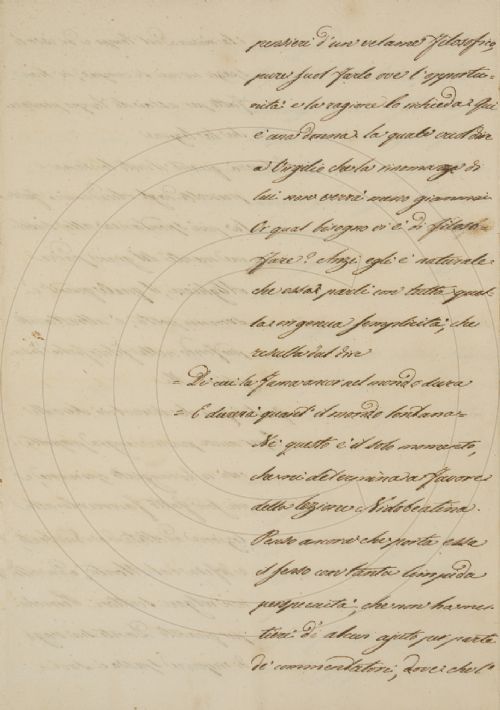 pensieri d'un velame filosofico,
pure suol farlo ove l'opportu-
nità e la ragione lo inchieda. Qui
è una donna la quale vuol dire
a Virgilio che la rinomanza di
lui non verrà meno giammai.
Or qual bisogno vi è di filoso-
fare? Anzi egli è naturale
che essa parli con tutta quel-
la ingenua semplicità, che
resulta dal dire
= Di cui la fama ancor nel mondo dura
= E durerà quant' il mondo lontana=
Nè questo è il solo momento,
che mi determina a favore
della lezione Nidobeatina.
Penso ancora che porta essa
il senso con tanta limpida
perspicuità, che non ha me-
stieri di alcun ajuto per parte
de' commentatori, dove che l'